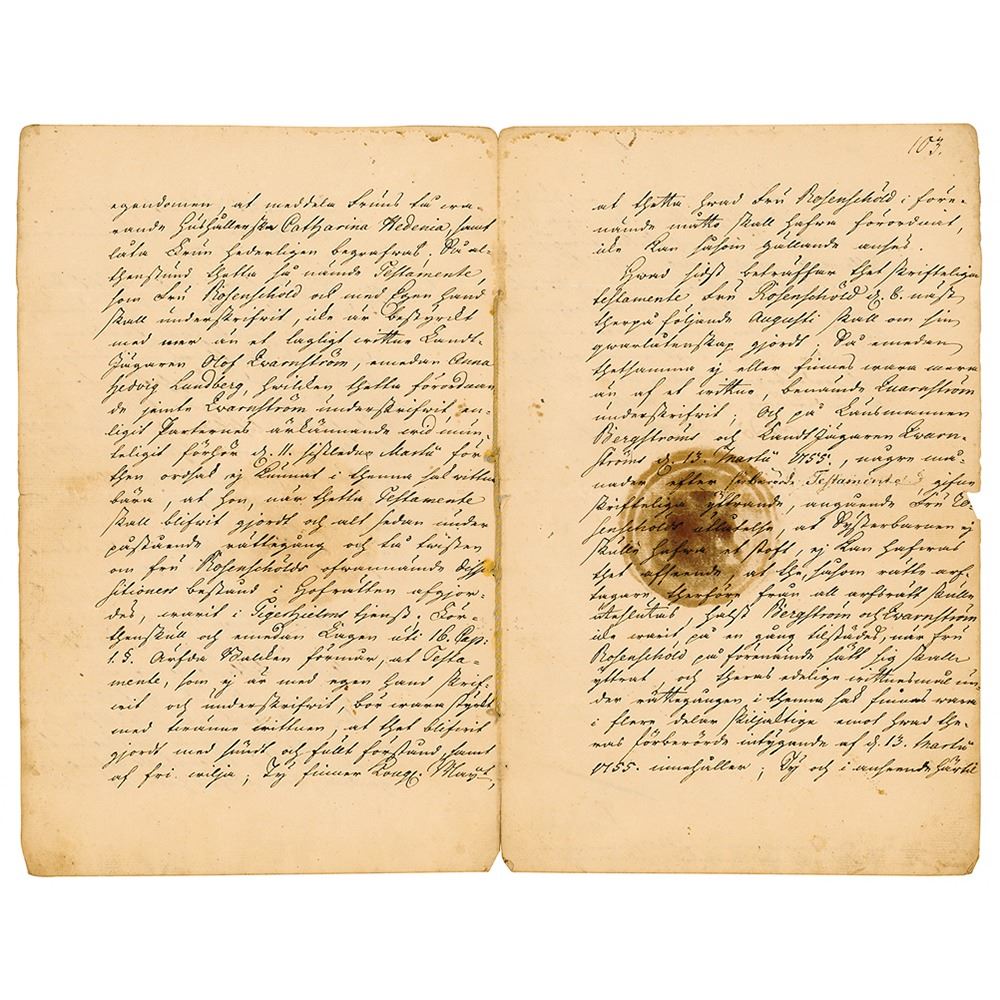 egendomen, at meddela Fruns tå wa-
rande Hushållerska Catharina Hedenia, samt
låta Frun hederligen begrafwas; Så al-
thenstund thetta så nämde Testamente,
som Fru Rosenschöld ock med Egen hand
skall underskrifwit, icke är bestyrckt
med mer än et lagligit wittne Landt-
Jägaren Olof Qwarnström, emedan Anna
Hedvig Lundberg, hwilken thetta förordnan-
de jemte Qwarnström underskrifwit, en-
ligit Parternes erkännande wid mun-
teligit förhör d. 11. sistledne Martii för
then ordsak ej kunnat i thenna sak wittna
bära, at hon, når thetta Testamente
skall blifwit gjordt och alt sedan under
påstående rättegång och til twisten
om Fru Rosenschölds ofwannämde dispo-
sitioners bestånd i Hofrätten afgjor-
des, warit i Tigerhielms tjenst; För-
thenskull och emedan Lagen uti 16. Cap:
1. §. Ärfda Balken förmår, at Testa-
mente, som ej är med egen hand skrif-
wit och underskrifwit, bör wara styrkt
med twänne wittnen, at thet blifwit
gjordt med sundt och fullt förstånd, samt
af fri wilja; Ty finner Kongl. Mayt,
103.
at thetta hwad Fru Rosenschöld i före-
nämde måtto skall hafwa förordnat,
icke kan såsom gällande anses.
Hwad sidst beträffar thet skrifteliga
testamente Fru Rosenschöld d. 6. näst
therpå följande Augusti skall om sin
qwarlåtenskap gjordt; Så emedan
thetsamma ej eller finnes wara mera
än af et wittne, benämde Quarnström
underskrifwit; Och på Länsmannen
Bergströms och Landt Jägaren Qwarn-
ströms d. 13. Martii 1755., någre må-
nader efter förberörde Testamente gifne
skrifteliga yttrande, angående Fru Ro-
senschölds utlåtelse, at Systerbarnen ej
skulle hafwa et stoft, ej kan hafwas
thet afseende, at the, såsom rätte arf-
tagare, therföre från all arfsrätt skulle
uteslutas, hälst Bergström och Qwarnström
icke warit på en gång tilstädes, när Fru
Rosenschöld på förenämde sätt sig skall
yttrat, och theras edelige wittnesmål un-
der rättegången i thenna sak finnes wara
i flere delar skiljaktige emot hwad the-
ras förberörde intygande af d. 13. Martii
1755. innehåller; Ty och i anseende härtil